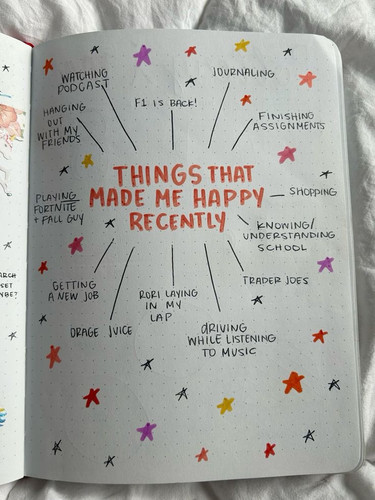 WATCHING
PODCAST
F1 IS BACK!
JOURNALING
HANGING
OUT
WITH MY
FRIENDS
FINISHING
ASSIGNMENTS
THINGS THAT
MADE ME HAPPY
RECENTLY
PLAYING
FORTNITE
+ FALL GUY
SHOPPING
KNOWING/
UNDERSTANDING
SCHOOL
GETTING
A NEW JOB
RORI LAYING
IN MY
LAP
TRADER JOES
ORAGE JUICE
DRIVING
WHILE LISTENING
TO MUSIC
ARCH
SET
YBE?